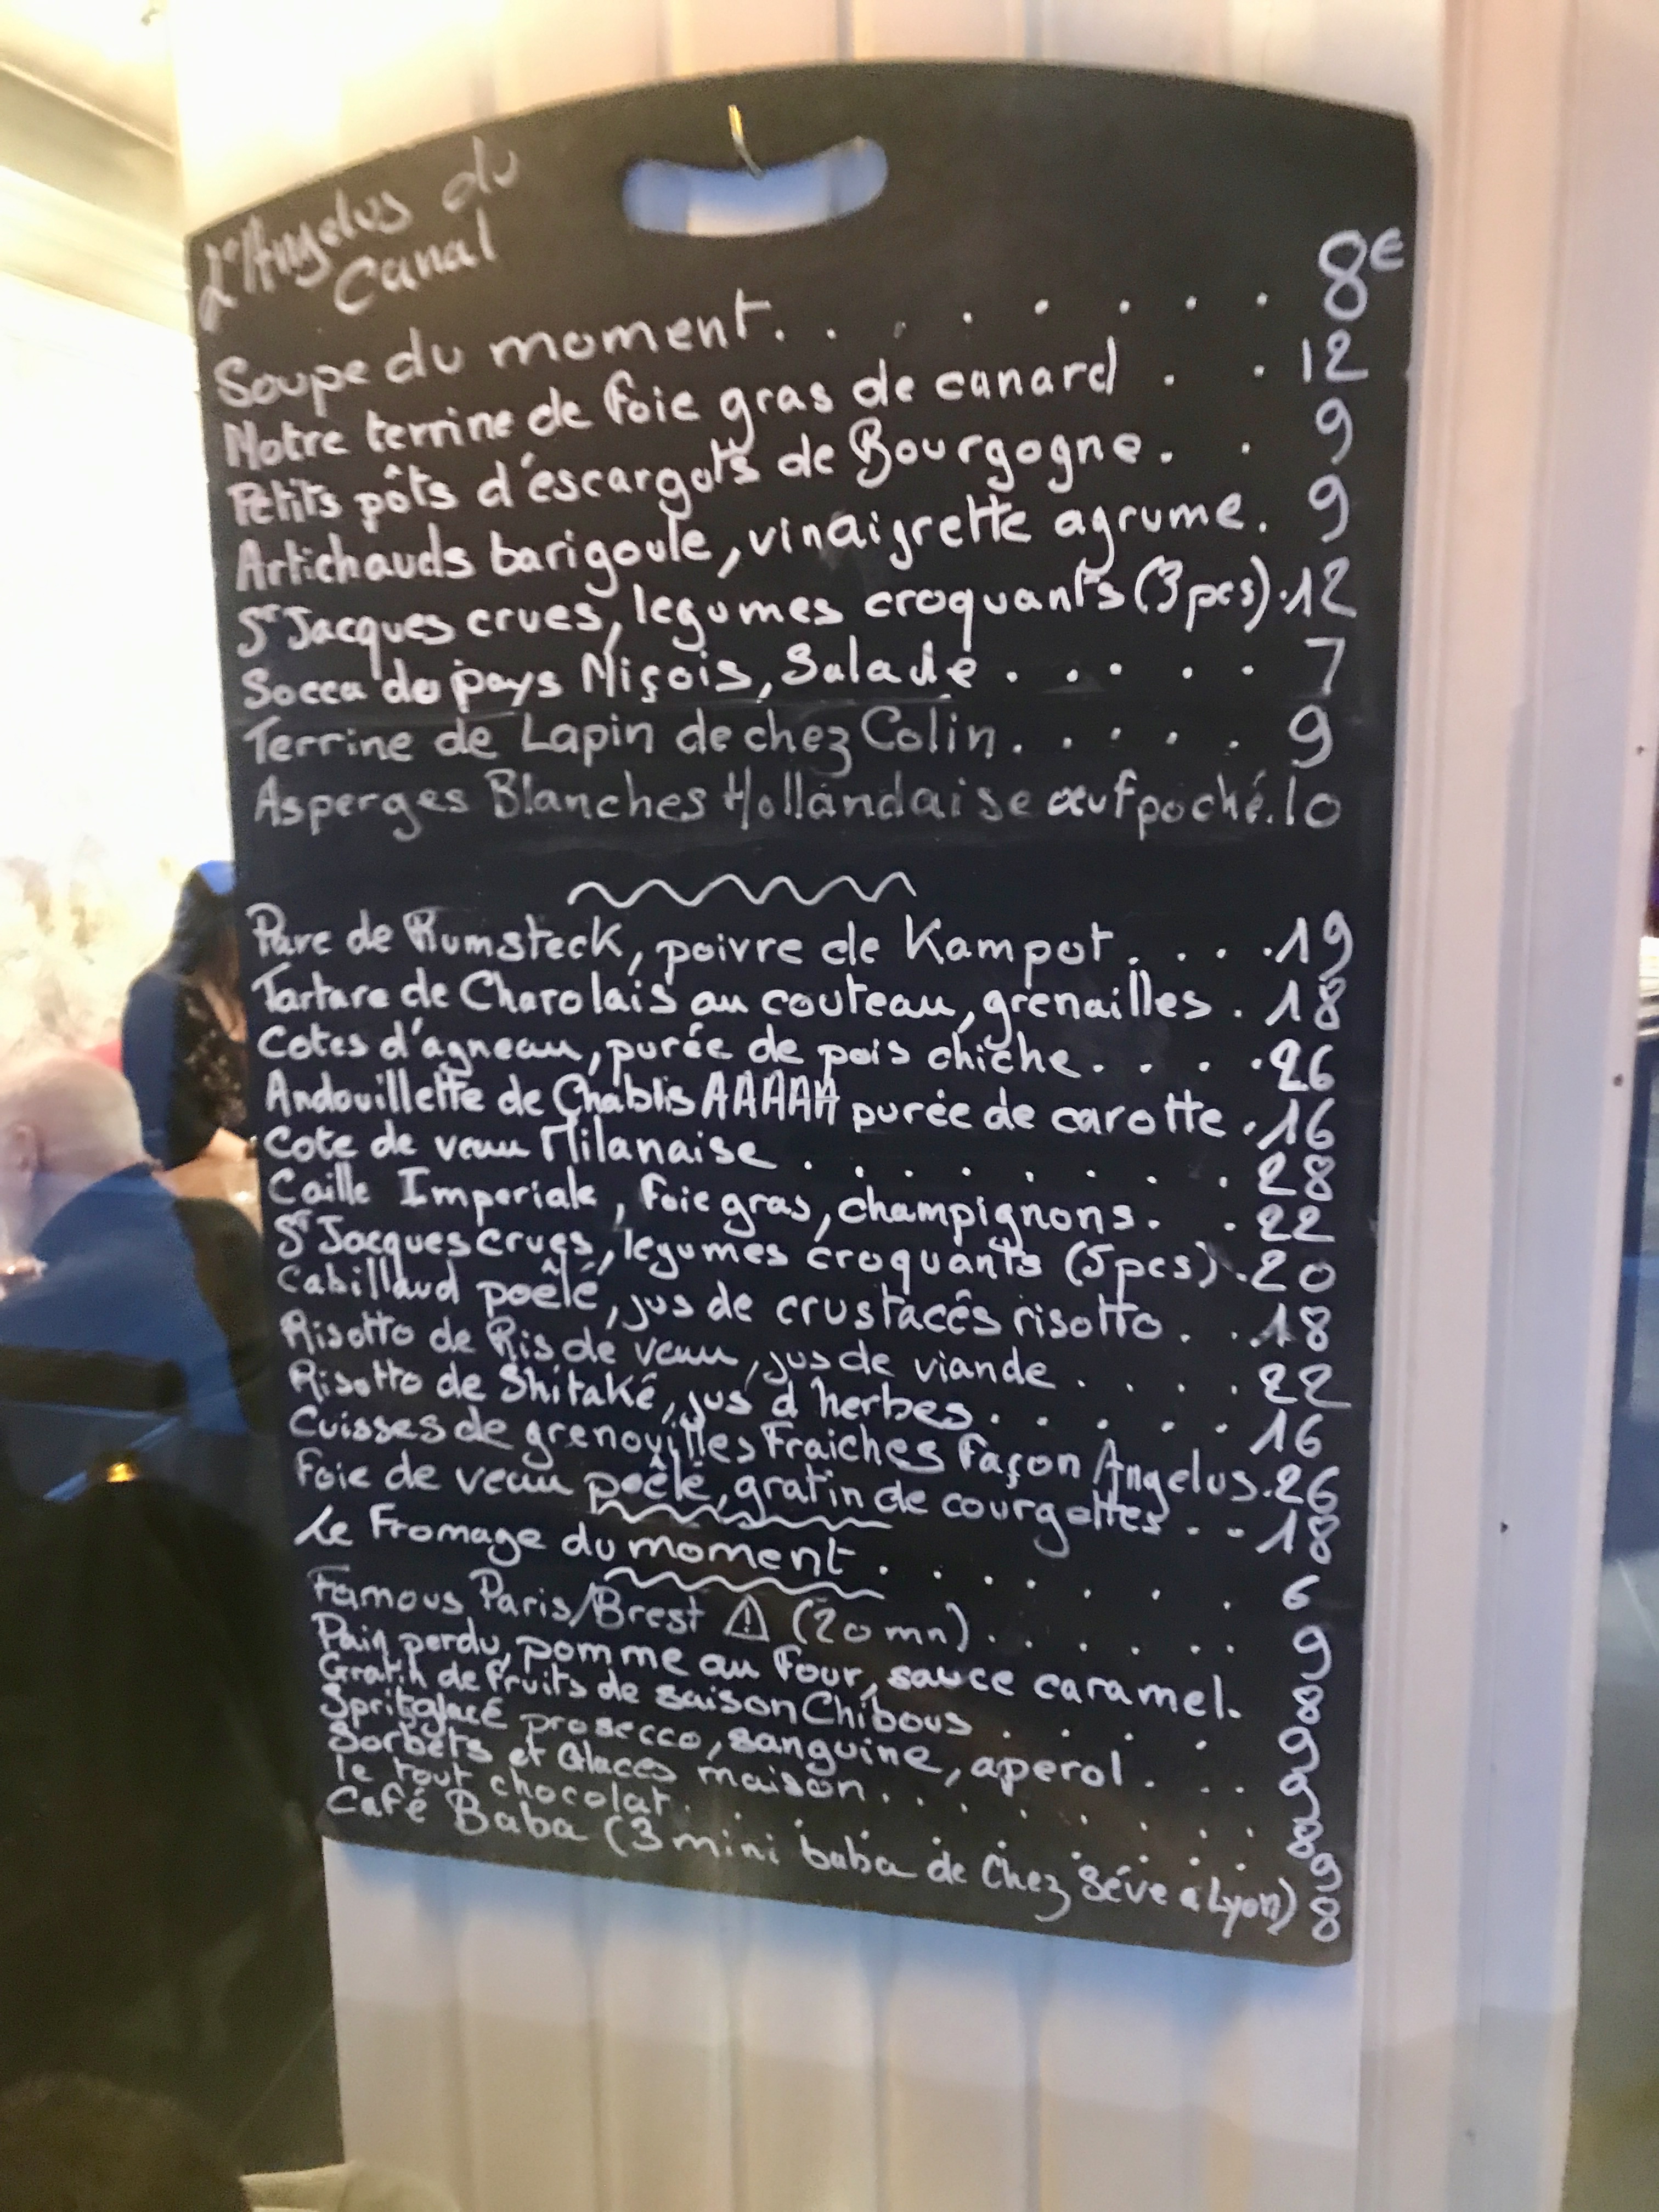 L'Angelus du
Canal
Soupe du moment. . . . . . . . 8€
Notre terrine de foie gras de canard . . 12
Petits pôts d'éscargots de Bourgogne. . 9
Artichauds barigoule, vinaigrette agrume. 9
St Jacques crues, legumes croquants (3pcs). 12
Socca du pays Niçois, Salade . . . . . 7
Terrine de Lapin de chez Colin. . . . . 9
Asperges Blanches Hollandaise œuf poché. 10
Pave de Rumsteck, poivre de Kampot. . . . 19
Tartare de Charolais au couteau, grenailles . 18
Cotes d'agneau, purée de pois chiche. . . . 26
Andouillette de Chablis AAAAA purée de carotte . 16
Cote de veau Milanaise . . . . . . . . 28
Caille Imperiale, foie gras, champignons. . 22
St Jacques crues, legumes croquants (5pcs). 20
Cabillaud poêlé, jus de crustacés risotto. . 18
Risotto de Ris de veau, jus de viande . . . . 22
Risotto de Shitaké, jus d'herbes. . . . . 16
Cuisses de grenouilles Fraiches Façon Angelus. 26
Foie de veau poêlé, gratin de courgettes. . . 18
Le Fromage du moment. . . . . . . 6
Famous Paris/Brest ⚠ (20 mn). . . . . . 9
Pain perdu, pomme au four, sauce caramel. 8
Gratin de fruits de saison Chibous . . . . 9
Spritz glacé prosecco, sanguine, aperol. . . 9
Sorbets et Glaces maison. . . . . . . 8
le tout chocolat. . . . . . . . . 9
Café Baba (3 mini baba de Chez Séve a Lyon) 8